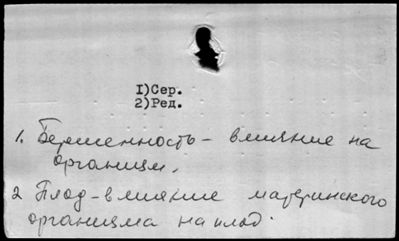 I)Сер.
2)Ред.
1. Беременность – влияние на
организм.
2 Плод – влияние материнского
организма на плод.